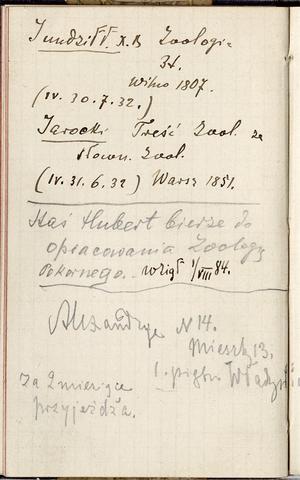 Jundziłł. X. B Zoologi=
3t.
Wilno 1807.
(IV. 30.7.32.)
Jarocki Treść Zool. za
słown. Zool.
(IV. 31.6.32) Warsz 1851.
Staś Hubert bierze do
opracowania Zoologę
Pokornego. wziął 1/VIII 84.
N 14.
Mieszk 13.
1. piętro
za 2 miesiące
przyjeżdża.